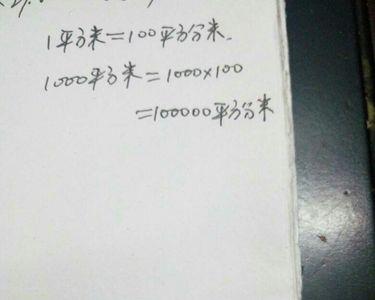 1平方米=100平方分米.
1000平方米=1000×100
=100000平方分米